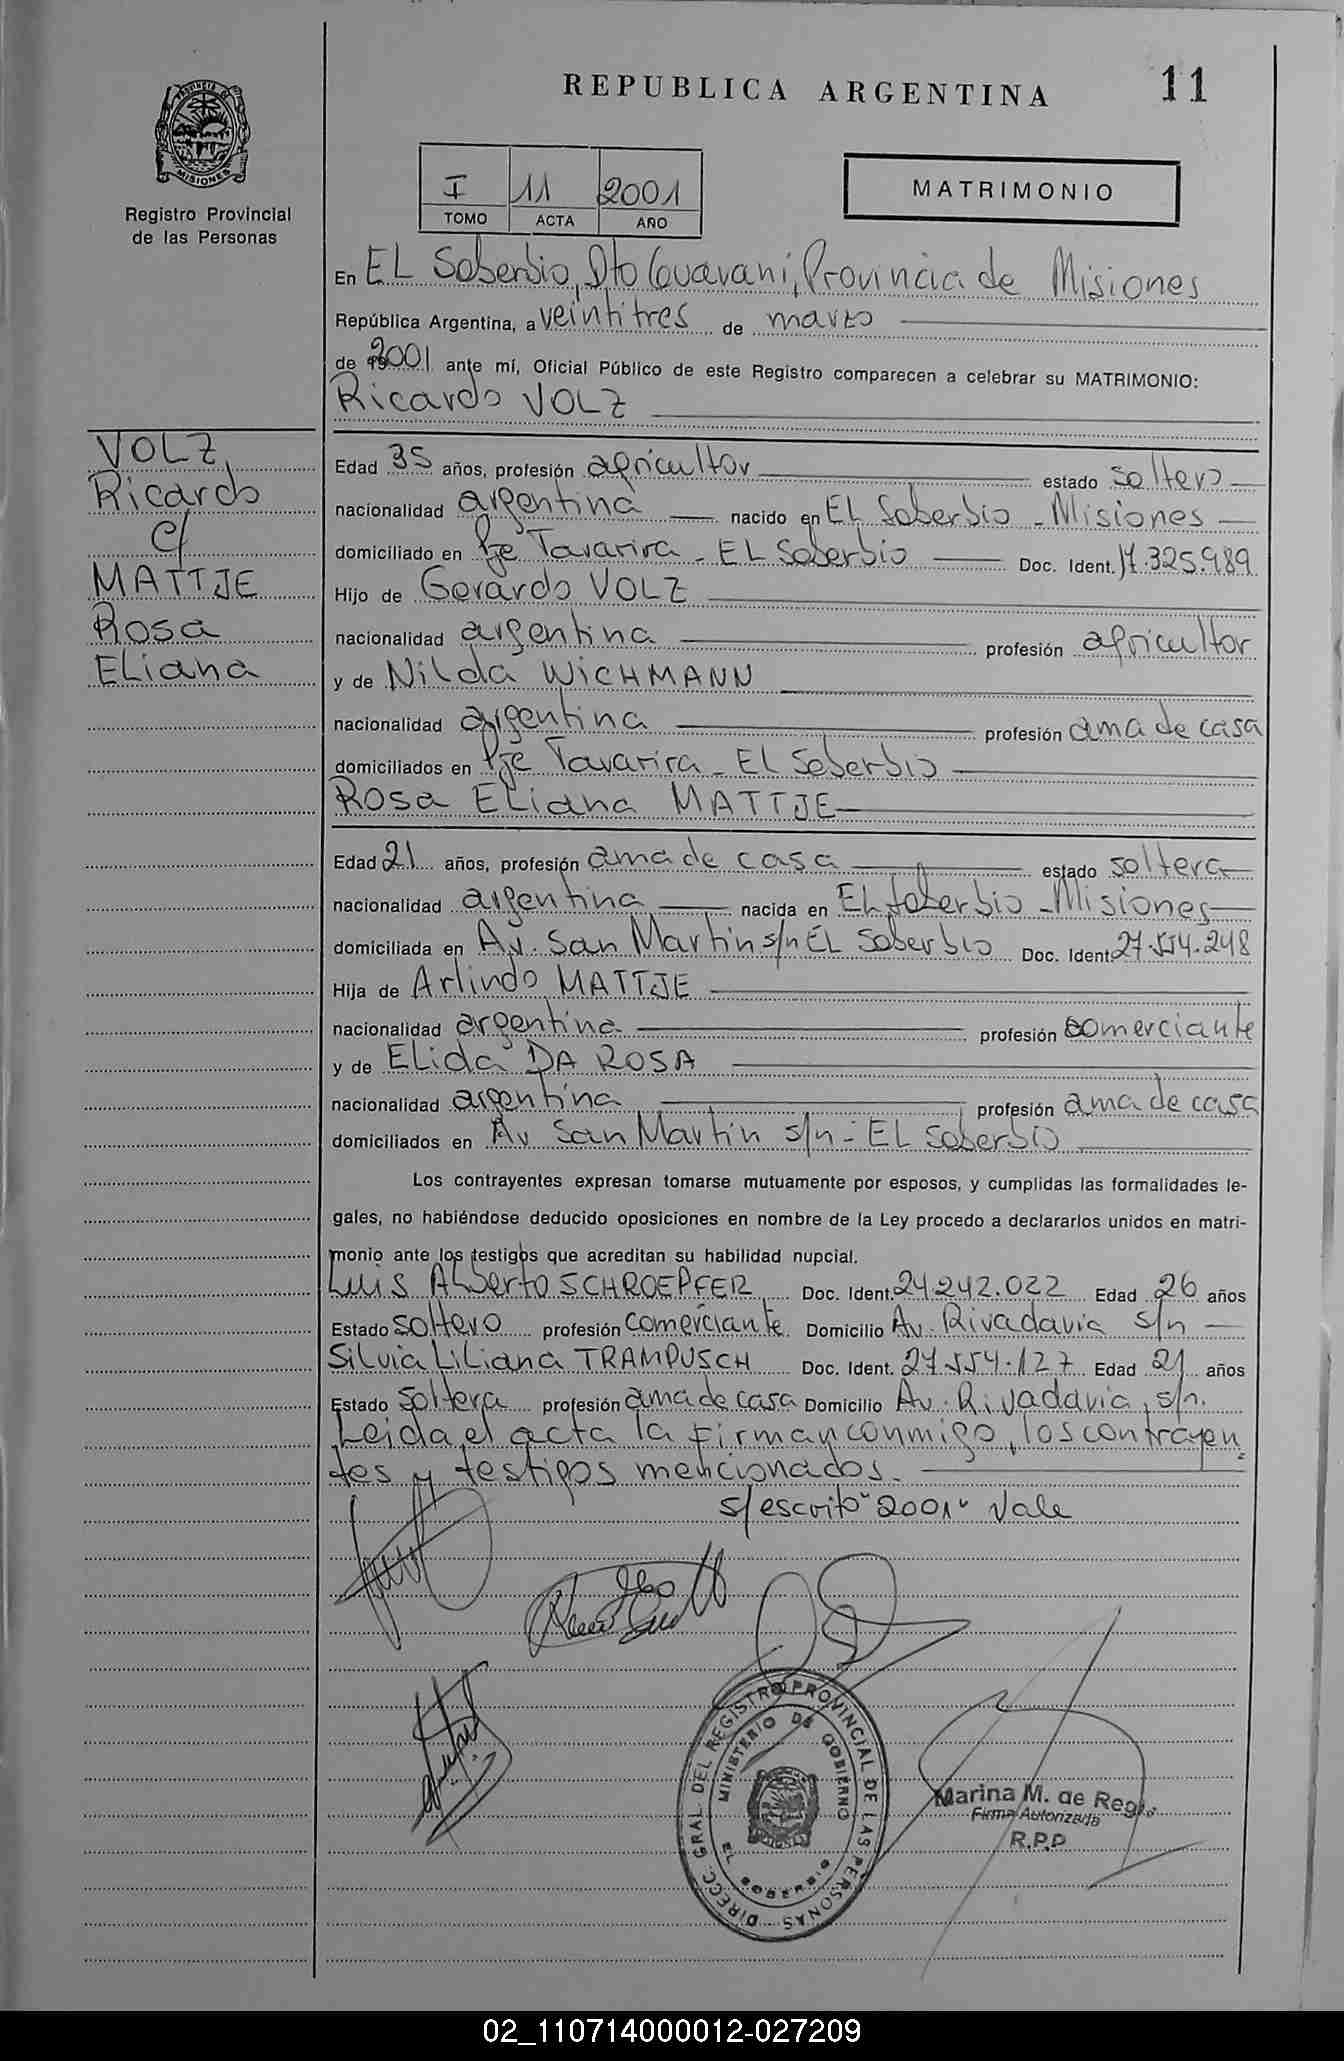 REPUBLICA ARGENTINA
11
PROVINCIA DE
MISIONES
Registro Provincial
de las Personas
I 11 2001
TOMO ACTA AÑO
MATRIMONIO
En EL Soberbio, Dto Guarani, Provincia de Misiones
República Argentina, a veintitres de marzo
de 2001 ante mí, Oficial Público de este Registro comparecen a celebrar su MATRIMONIO:
Ricardo VOLZ
VOLZ
Ricardo
c/
MATTJE
Rosa
ELiana
Edad 35 años, profesión agricultor estado soltero
nacionalidad argentina nacido en EL Soberbio - Misiones
domiciliado en Pje Tavarira - EL Soberbio Doc. Ident. 17.325.989
Hijo de Gerardo VOLZ
nacionalidad argentina profesión agricultor
y de Nilda WICHMANN
nacionalidad argentina profesión ama de casa
domiciliados en Pje Tavarira - EL Soberbio
Rosa ELiana MATTJE
Edad 21 años, profesión ama de casa estado soltera
nacionalidad argentina nacida en EL Soberbio - Misiones
domiciliada en Av. San Martin s/n EL Soberbio Doc. Ident. 27.554.248
Hija de Arlindo MATTJE
nacionalidad argentina profesión comerciante
y de ELida DA ROSA
nacionalidad argentina profesión ama de casa
domiciliados en Av San Martin s/n - EL Soberbio
Los contrayentes expresan tomarse mutuamente por esposos, y cumplidas las formalidades le-
gales, no habiéndose deducido oposiciones en nombre de la Ley procedo a declararlos unidos en matri-
monio ante los testigos que acreditan su habilidad nupcial.
Luis ALberto SCHROEPFER Doc. Ident. 24.242.022 Edad 26 años
Estado soltero profesión comerciante Domicilio Av. Rivadavia s/n
Silvia Liliana TRAMPUSCH Doc. Ident. 27.554.127 Edad 21 años
Estado soltera profesión ama de casa Domicilio Av. Rivadavia, s/n.
Leida el acta la firman conmigo, los contrayen
tes y testigos mencionados.
s/escrito "2001" Vale
DIRECC. GRAL. DEL REGISTRO PROVINCIAL DE LAS PERSONAS
MINISTERIO DE GOBIERNO
EL SOBERBIO
Marina M. de Regis
Firma Autorizada
R.P.P
02_110714000012-027209